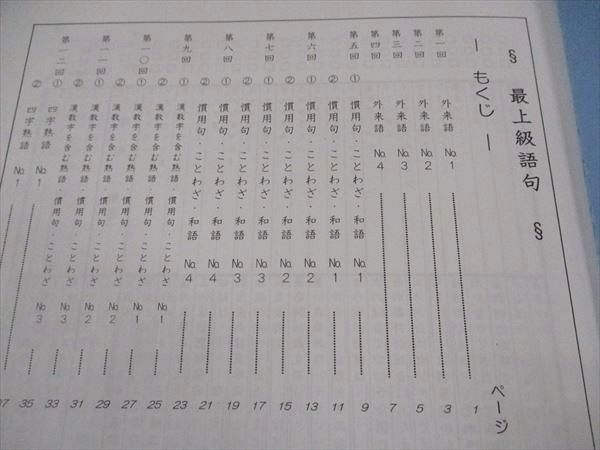 § 最上級語句 §
― もくじ ―
ページ
第一回 外来語 No.1 1
第二回 外来語 No.2 3
第三回 外来語 No.3 5
第四回 外来語 No.4 7
第五回 ① 慣用句・ことわざ・和語 No.1 9
② 慣用句・ことわざ・和語 No.1 11
第六回 ① 慣用句・ことわざ・和語 No.2 13
② 慣用句・ことわざ・和語 No.2 15
第七回 ① 慣用句・ことわざ・和語 No.3 17
② 慣用句・ことわざ・和語 No.3 19
第八回 ① 慣用句・ことわざ・和語 No.4 21
② 慣用句・ことわざ・和語 No.4 23
第九回 ① 漢数字を含む熟語・慣用句・ことわざ No.1 25
② 漢数字を含む熟語・慣用句・ことわざ No.1 27
第一〇回 ① 漢数字を含む熟語・慣用句・ことわざ No.2 29
② 漢数字を含む熟語・慣用句・ことわざ No.2 31
第一一回 ① 漢数字を含む熟語・慣用句・ことわざ No.3 33
② 漢数字を含む熟語・慣用句・ことわざ No.3 35
第一二回 ① 四字熟語 No.1 37
② 四字熟語 No.1